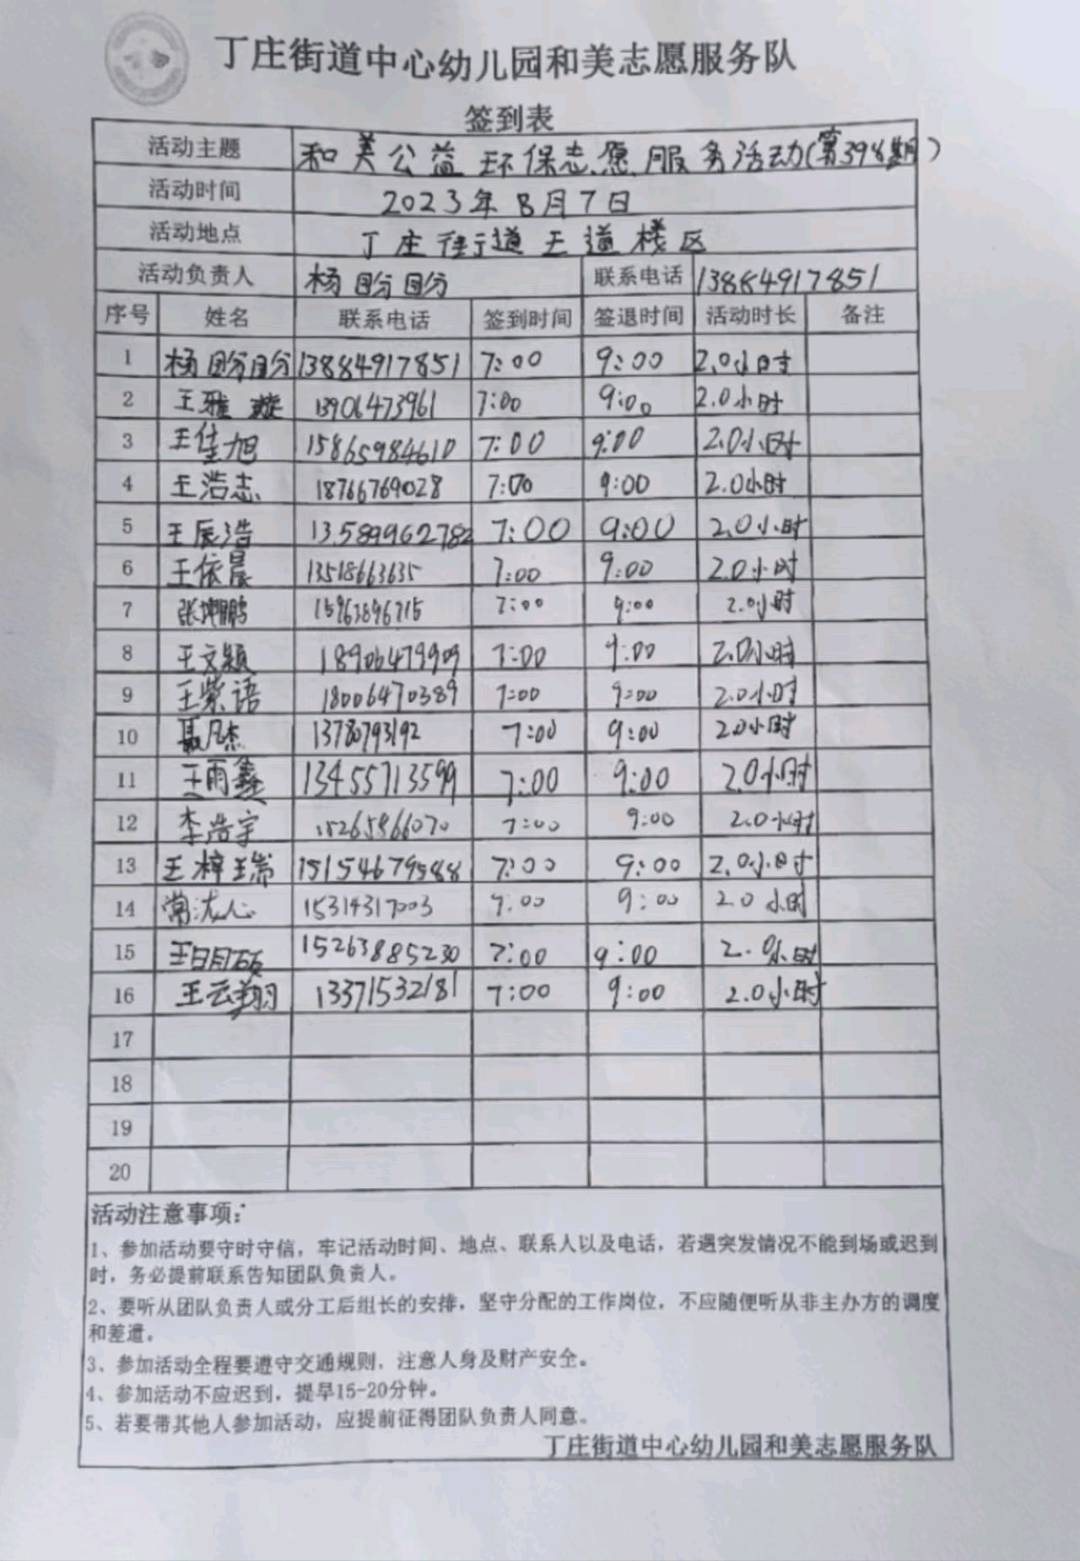 丁庄街道中心幼儿园和美志愿服务队
签到表
活动主题 和美公益环保志愿服务活动(第398期)
活动时间 2023年8月7日
活动地点 丁庄街道王道楼区
活动负责人 杨盼盼 联系电话 13884917851
序号 姓名 联系电话 签到时间 签退时间 活动时长 备注
1 杨盼盼 13884917851 7:00 9:00 2.0小时
2 王雅璇 13906473961 7:00 9:00 2.0小时
3 王佳旭 15865984610 7:00 9:00 2.0小时
4 王浩志 18766769028 7:00 9:00 2.0小时
5 王辰浩 13589962782 7:00 9:00 2.0小时
6 王依晨 13518663635 7:00 9:00 2.0小时
7 15963896715 7:00 9:00 2.0小时
8 王文颖 18906479909 7:00 9:00 2.0小时
9 王紫语 18006470389 7:00 9:00 2.0小时
10 聂凡杰 13780793192 7:00 9:00 2.0小时
11 王雨鑫 13455713599 7:00 9:00 2.0小时
12 李浩宇 15265866070 7:00 9:00 2.0小时
13 王梓瑞 15154679588 7:00 9:00 2.0小时
14 15314317003 7:00 9:00 2.0小时
15 王明硕 15263885230 7:00 9:00 2.0小时
16 王云翔 13371532181 7:00 9:00 2.0小时
17
18
19
20
活动注意事项:
1、参加活动要守时守信，牢记活动时间、地点、联系人以及电话，若遇突发情况不能到场或迟到
时，务必提前联系告知团队负责人。
2、要听从团队负责人或分工后组长的安排，坚守分配的工作岗位，不应随便听从非主办方的调度
和差遣。
3、参加活动全程要遵守交通规则，注意人身及财产安全。
4、参加活动不应迟到，提早15-20分钟。
5、若要带其他人参加活动，应提前征得团队负责人同意。
丁庄街道中心幼儿园和美志愿服务队